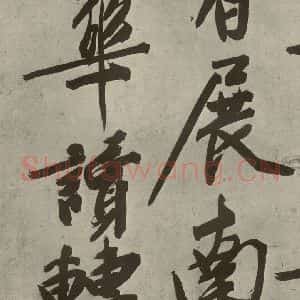 展南
華讀轉
Shufawang.CN